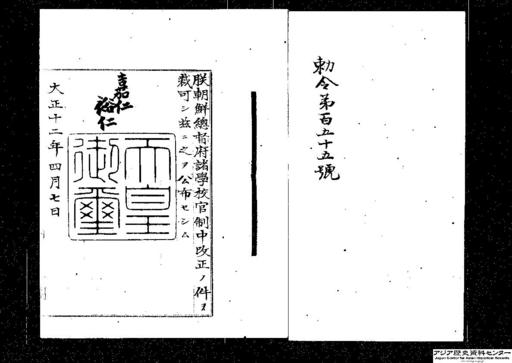 勅令第百五十五號
朕朝鮮總督府諸學校官制中改正ノ件ヲ
裁可シ玆ニ之ヲ公布セシム
嘉仁
裕仁
天皇
御璽
大正十二年四月七日
アジア歴史資料センター
Japan Center for Asian Historical Records